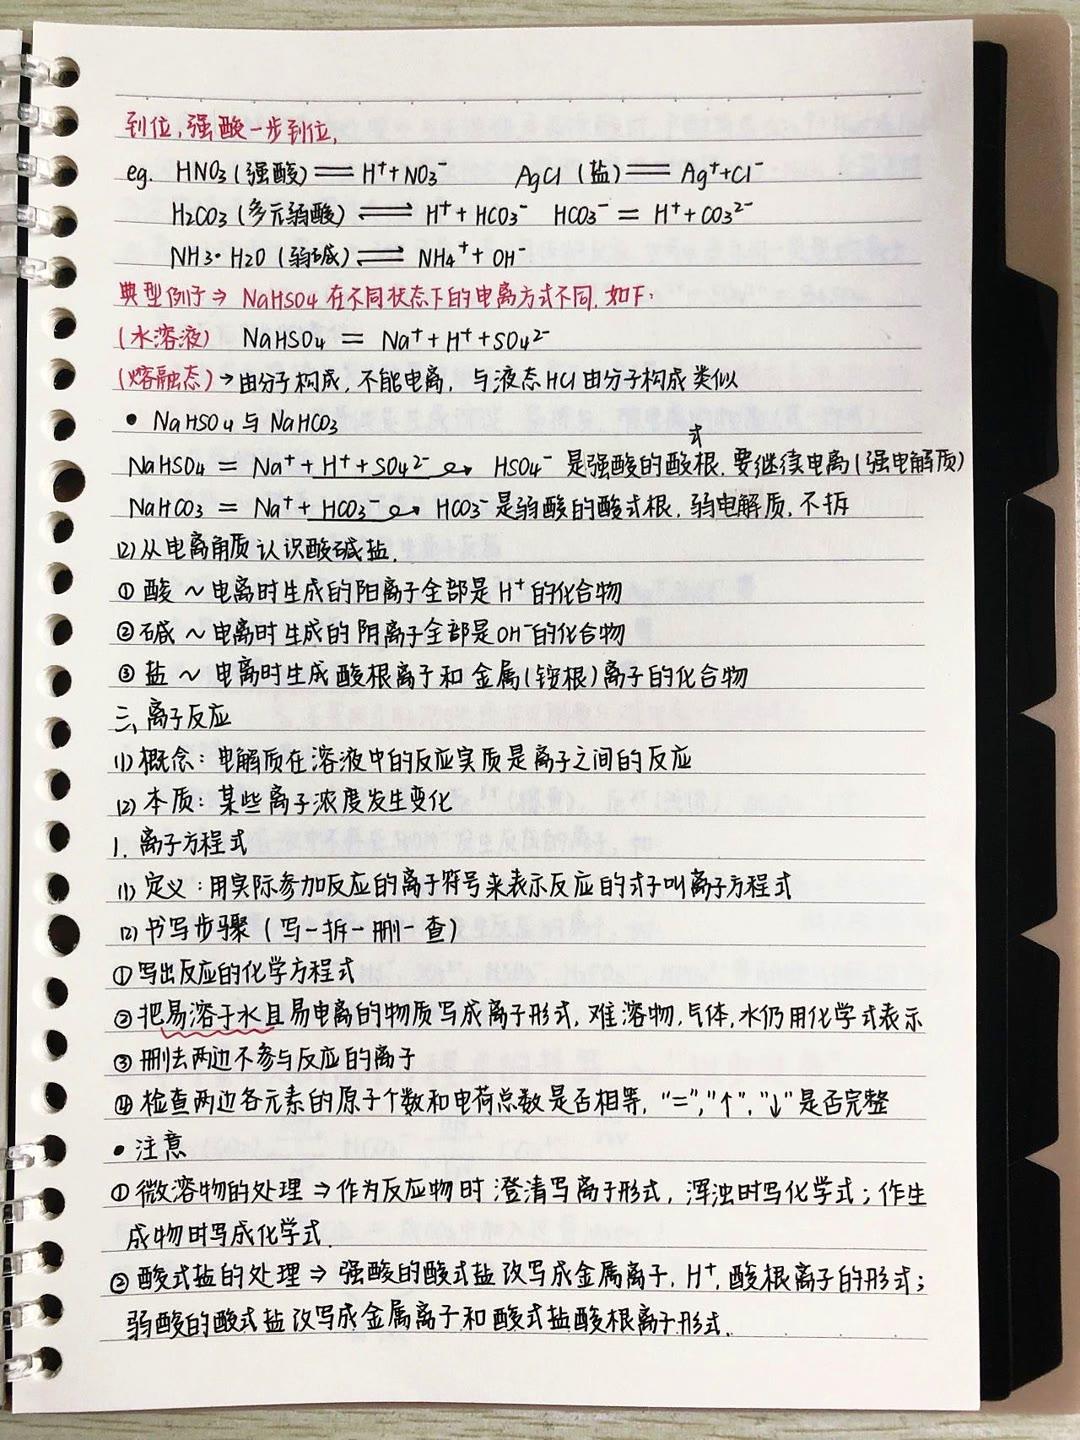 到位,强酸一步到位,
eg. HNO₃(强酸)══H⁺+NO₃⁻ AgCl(盐)══Ag⁺+Cl⁻
H₂CO₃(多元弱酸)⇌H⁺+HCO₃⁻ HCO₃⁻=H⁺+CO₃²⁻
NH₃·H₂O(弱碱)⇌NH₄⁺+OH⁻
典型例子⇒NaHSO₄在不同状态下的电离方式不同,如下:
(水溶液) NaHSO₄=Na⁺+H⁺+SO₄²⁻
(熔融态)→由分子构成,不能电离,与液态HCl由分子构成类似
• NaHSO₄与NaHCO₃
NaHSO₄=Na⁺+H⁺+SO₄²⁻→HSO₄⁻是强酸的酸式根,要继续电离(强电解质)
NaHCO₃=Na⁺+HCO₃⁻→HCO₃⁻是弱酸的酸式根,弱电解质,不拆
(2)从电离角质认识酸碱盐.
①酸~电离时生成的阳离子全部是H⁺的化合物
②碱~电离时生成的阴离子全部是OH⁻的化合物
③盐~电离时生成酸根离子和金属(铵根)离子的化合物
三、离子反应
(1)概念:电解质在溶液中的反应实质是离子之间的反应
(2)本质:某些离子浓度发生变化
1.离子方程式
(1)定义:用实际参加反应的离子符号来表示反应的式子叫离子方程式
(2)书写步骤(写一拆一删一查)
①写出反应的化学方程式
②把易溶于水且易电离的物质写成离子形式,难溶物,气体,水仍用化学式表示
③删去两边不参与反应的离子
④检查两边各元素的原子个数和电荷总数是否相等,"=","↑","↓"是否完整
•注意
①微溶物的处理⇒作为反应物时澄清写离子形式,浑浊时写化学式;作生
成物时写成化学式.
②酸式盐的处理⇒强酸的酸式盐改写成金属离子,H⁺,酸根离子的形式;
弱酸的酸式盐改写成金属离子和酸式盐酸根离子形式.